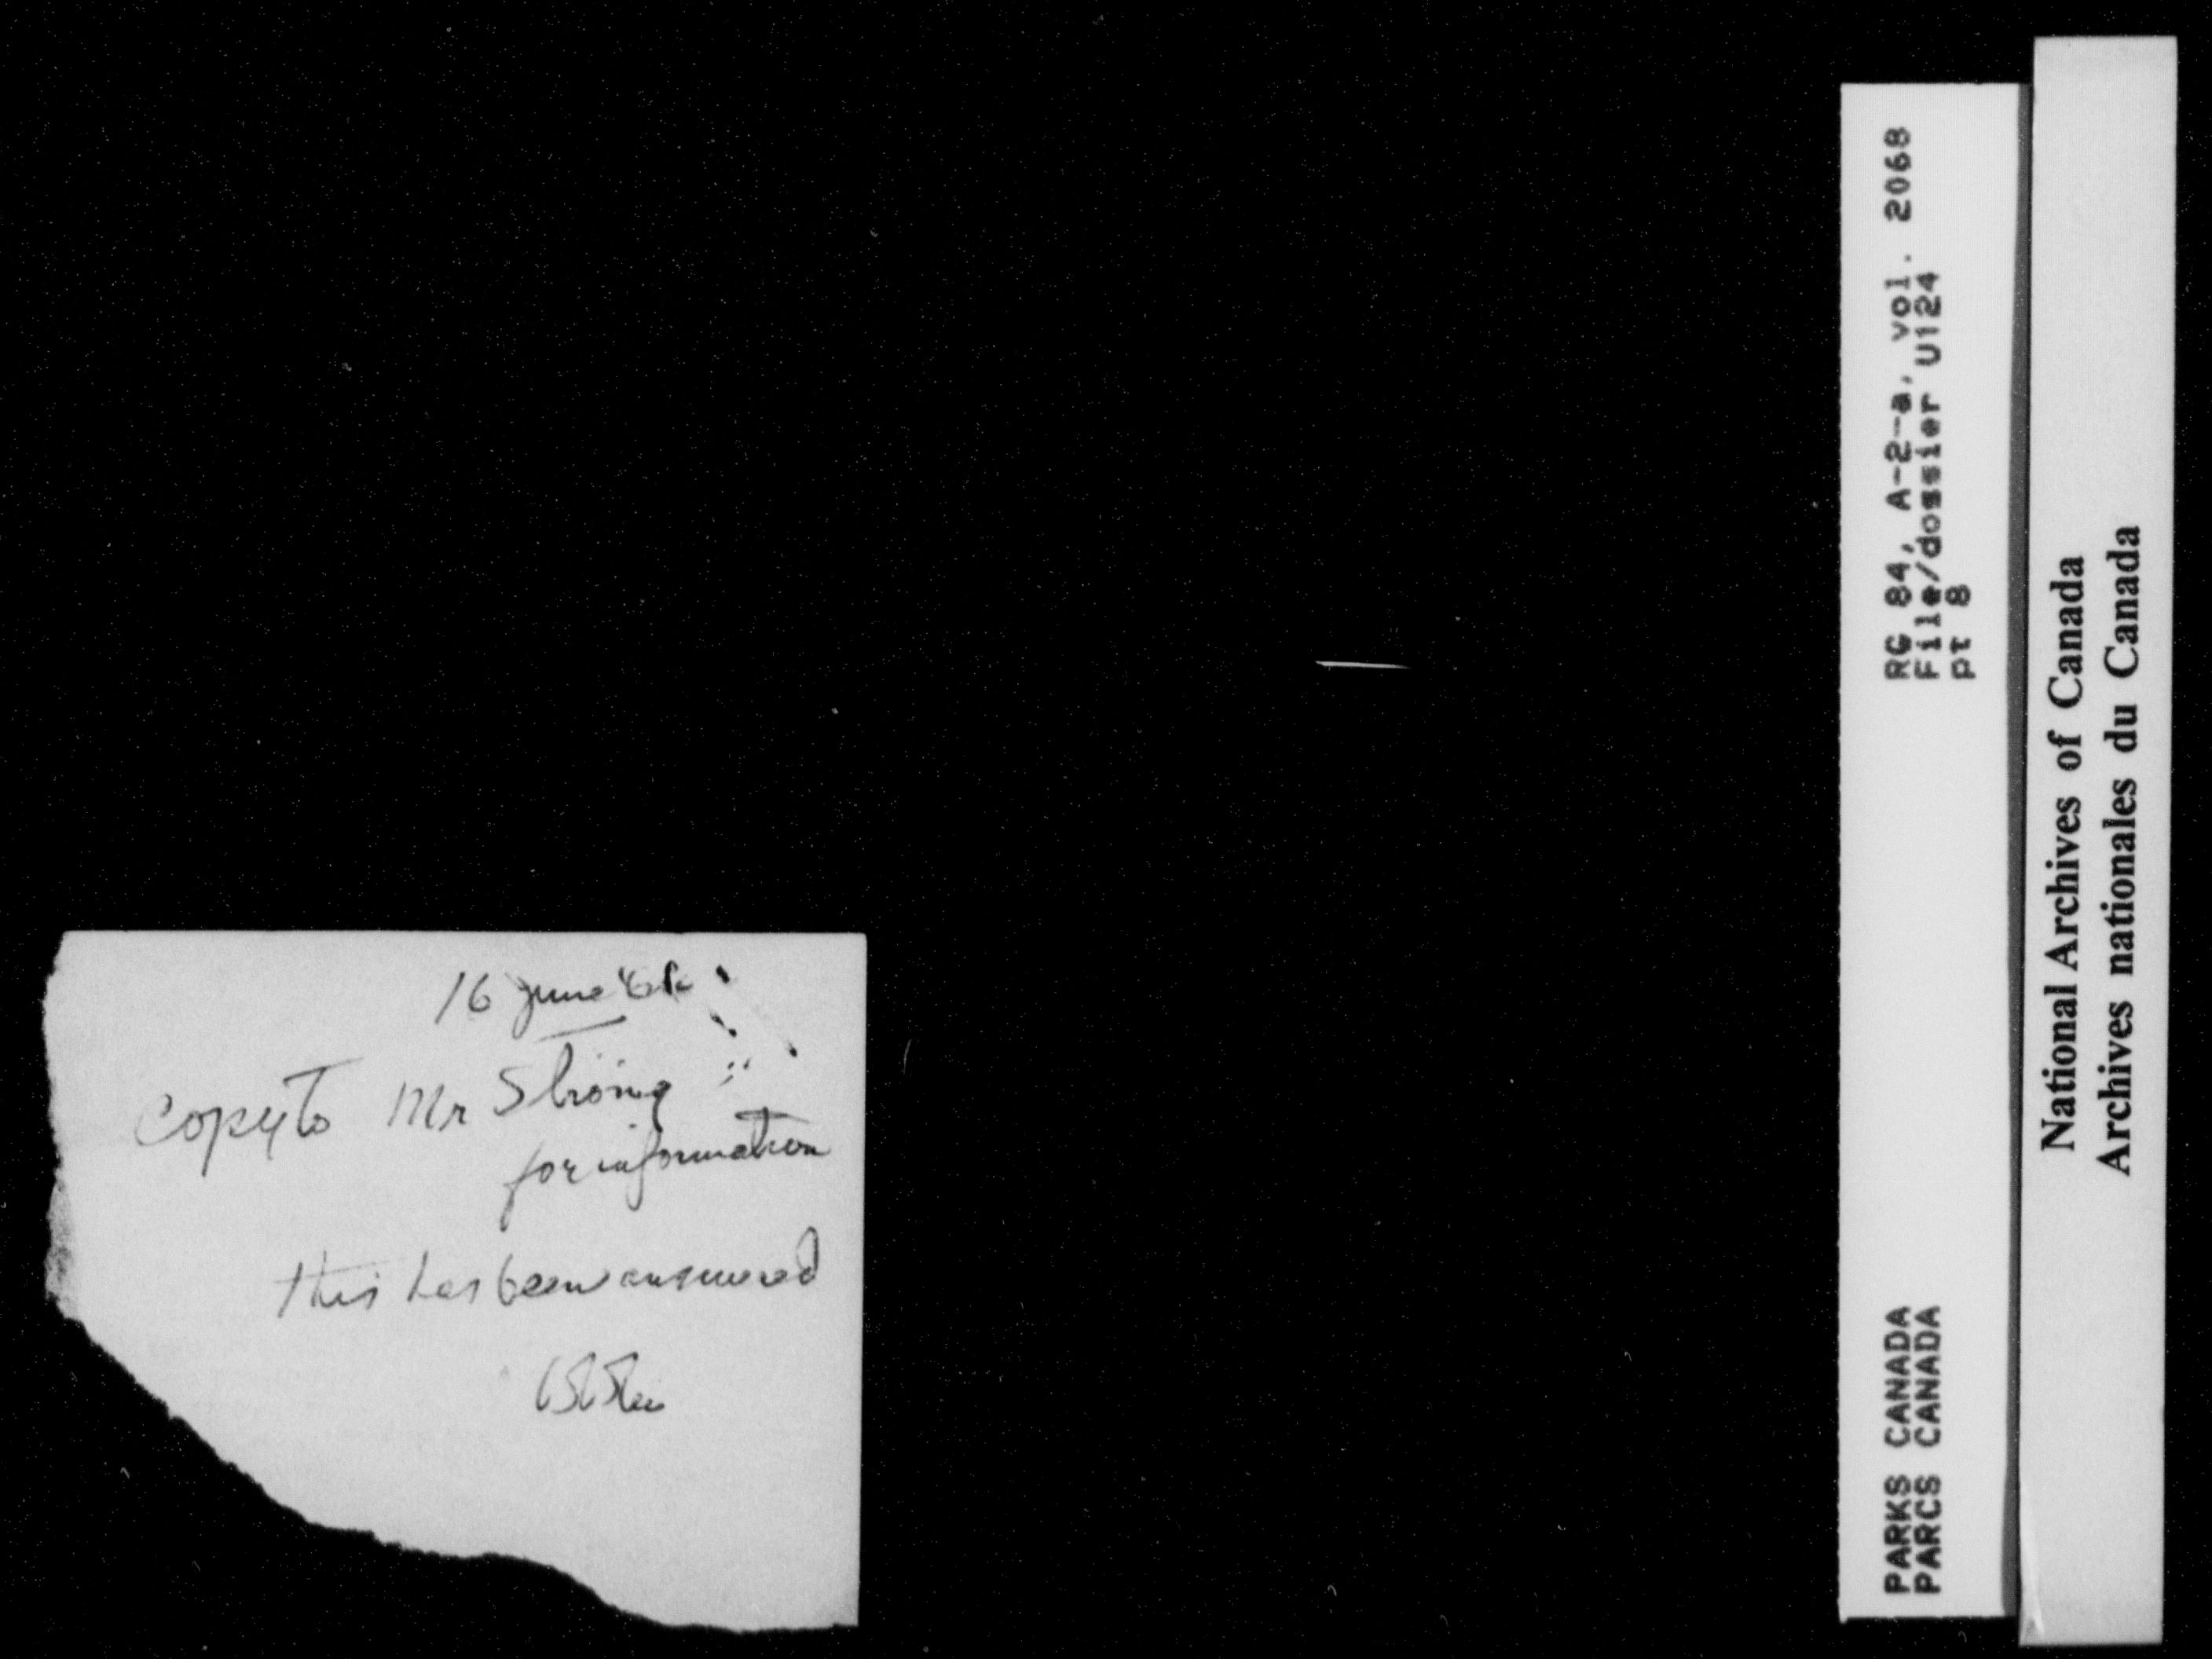 16 June
Copy to Mr Strong
for information
this has been answered
RG 84, A-2-a, vol. 2068
File/dossier U124
pt 8
PARKS CANADA
PARCS CANADA
National Archives of Canada
Archives nationales du Canada